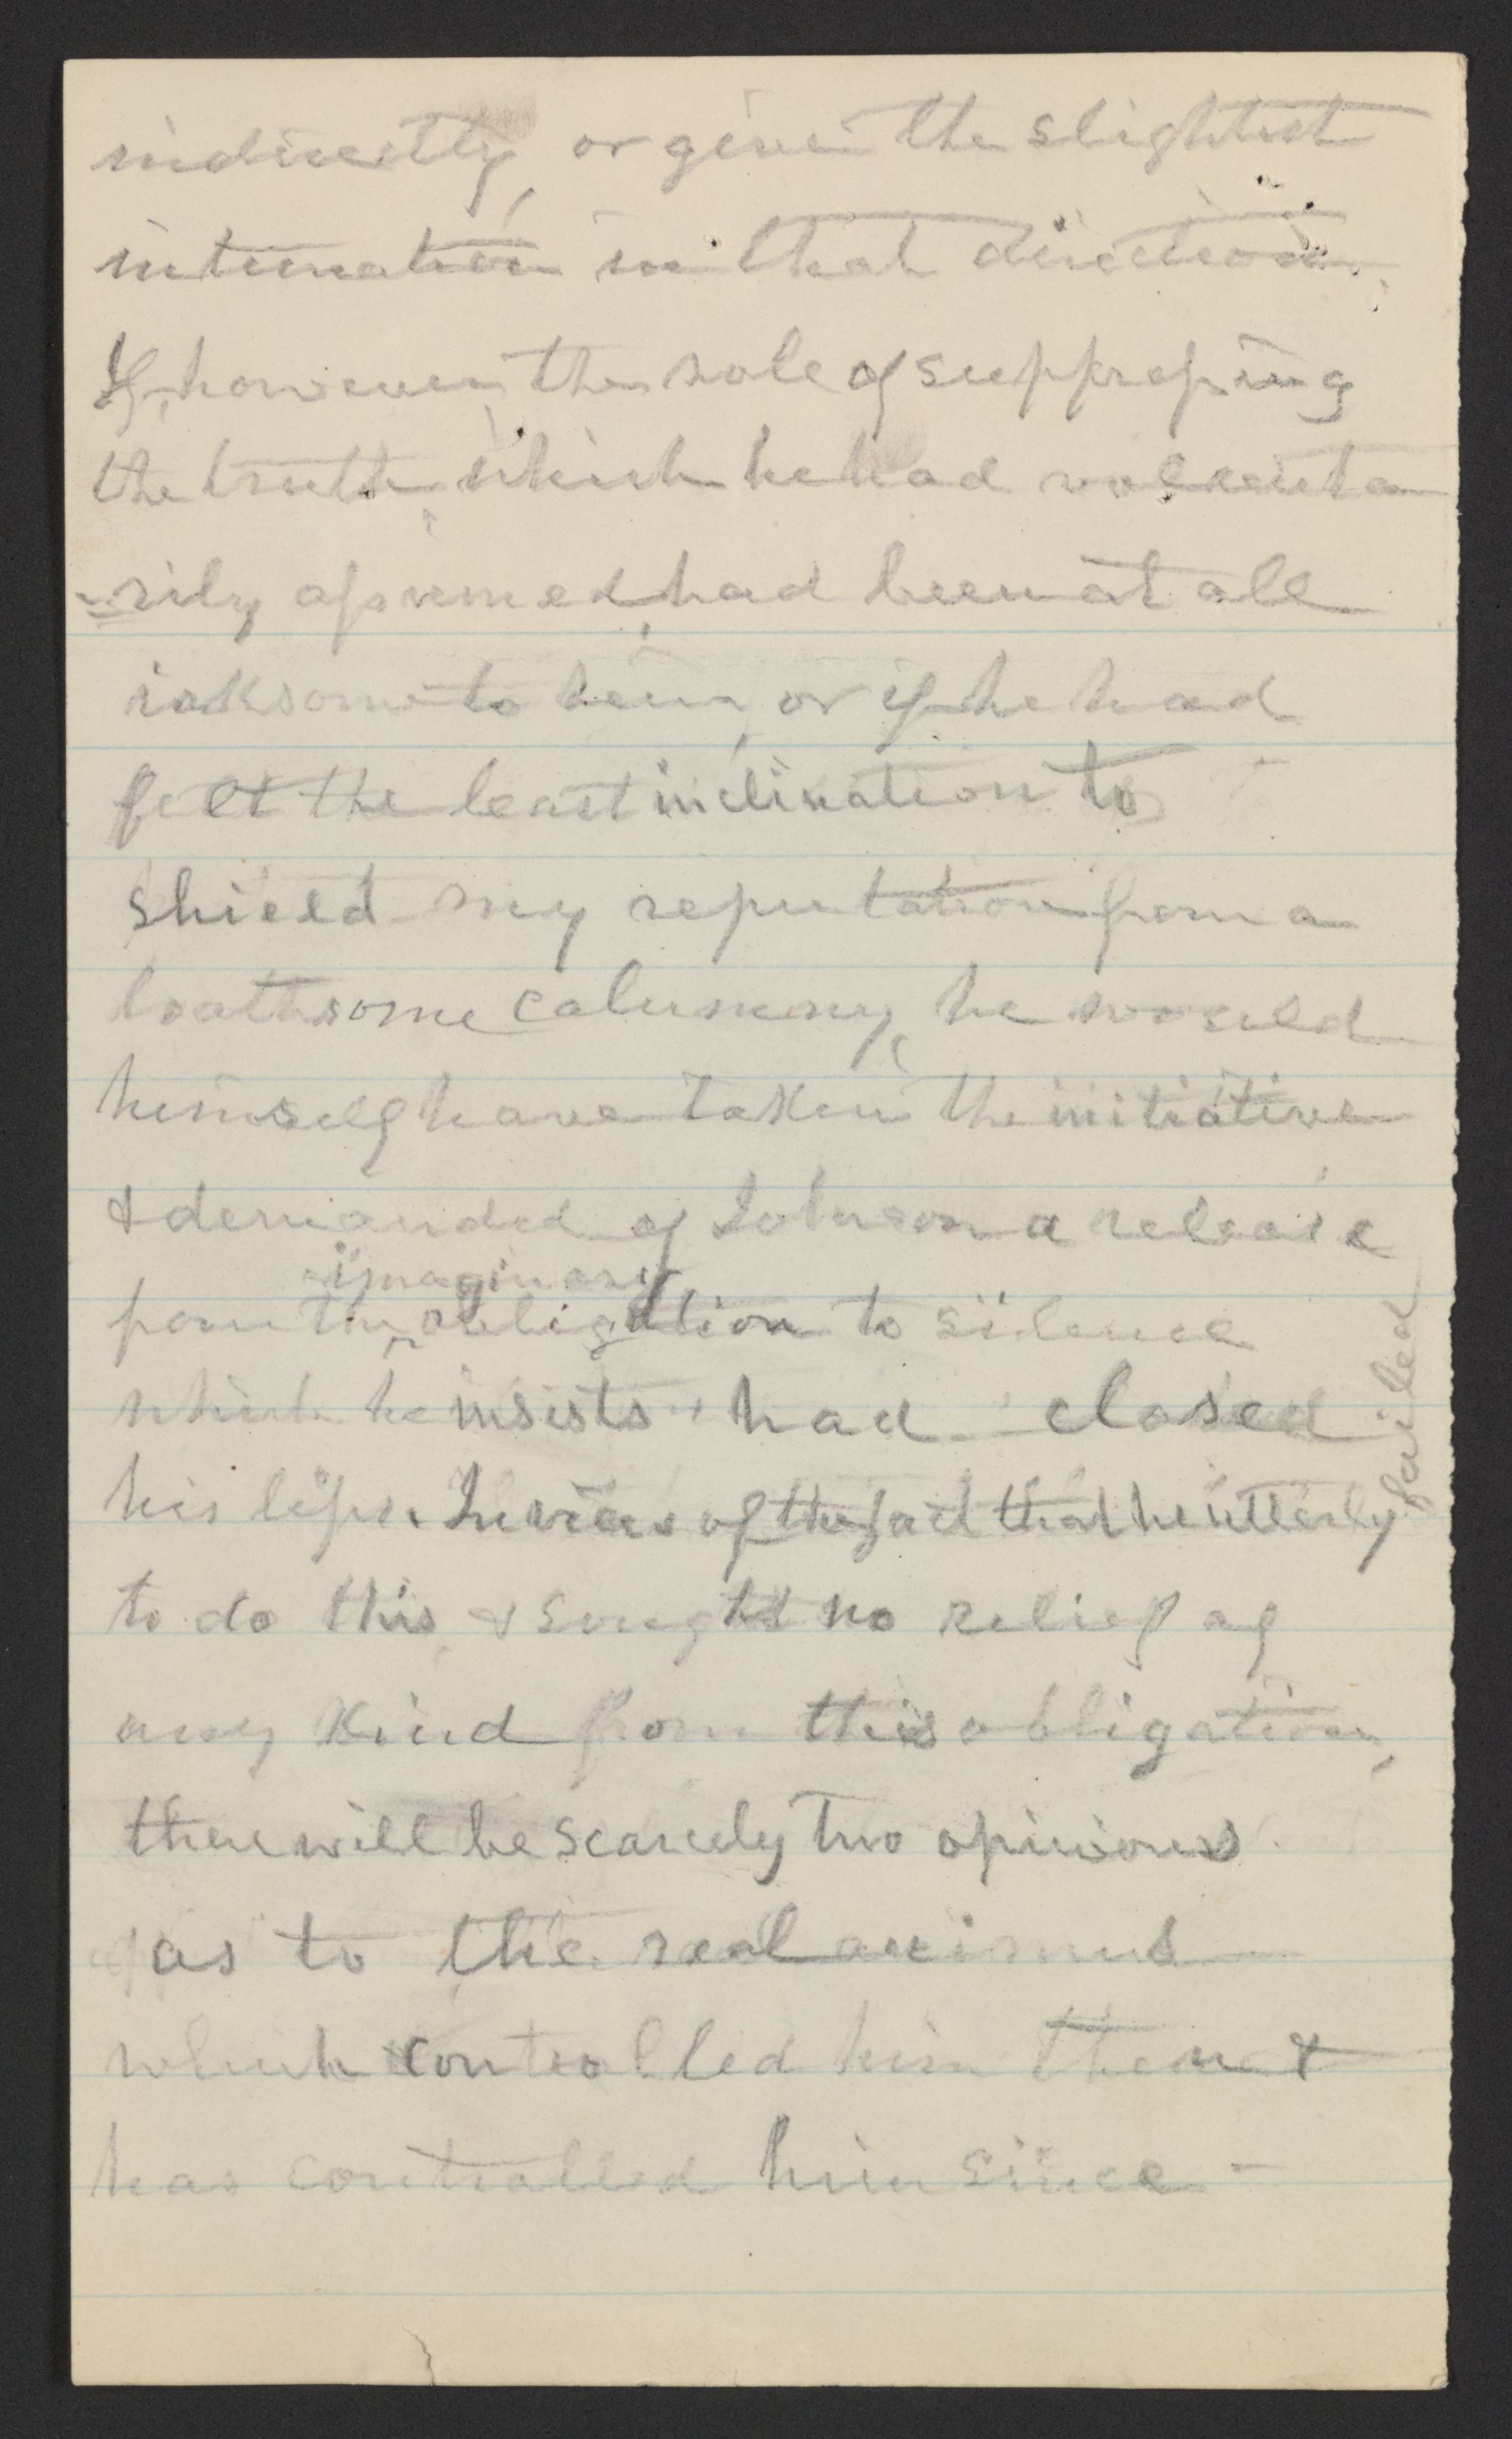 indirectly, or given the slightest
intimation in that direction.
If, however, the role of suppressing
the truth, which he had volunta
-rily assumed, had been at all
irksome to him, or if he had
felt the least inclination to
shield my reputation from a
loathsome calumny, he would
himself have taken the initiative
& demanded of Johnson a release
imaginary
from the obligation to silence
which he insists had closed
his lips. In view of the fact that he utterly
failed
to do this & sought no relief of
any kind from this obligation,
there will be scarcely two opinions
as to the real animus
which controlled him then &
has controlled him since -